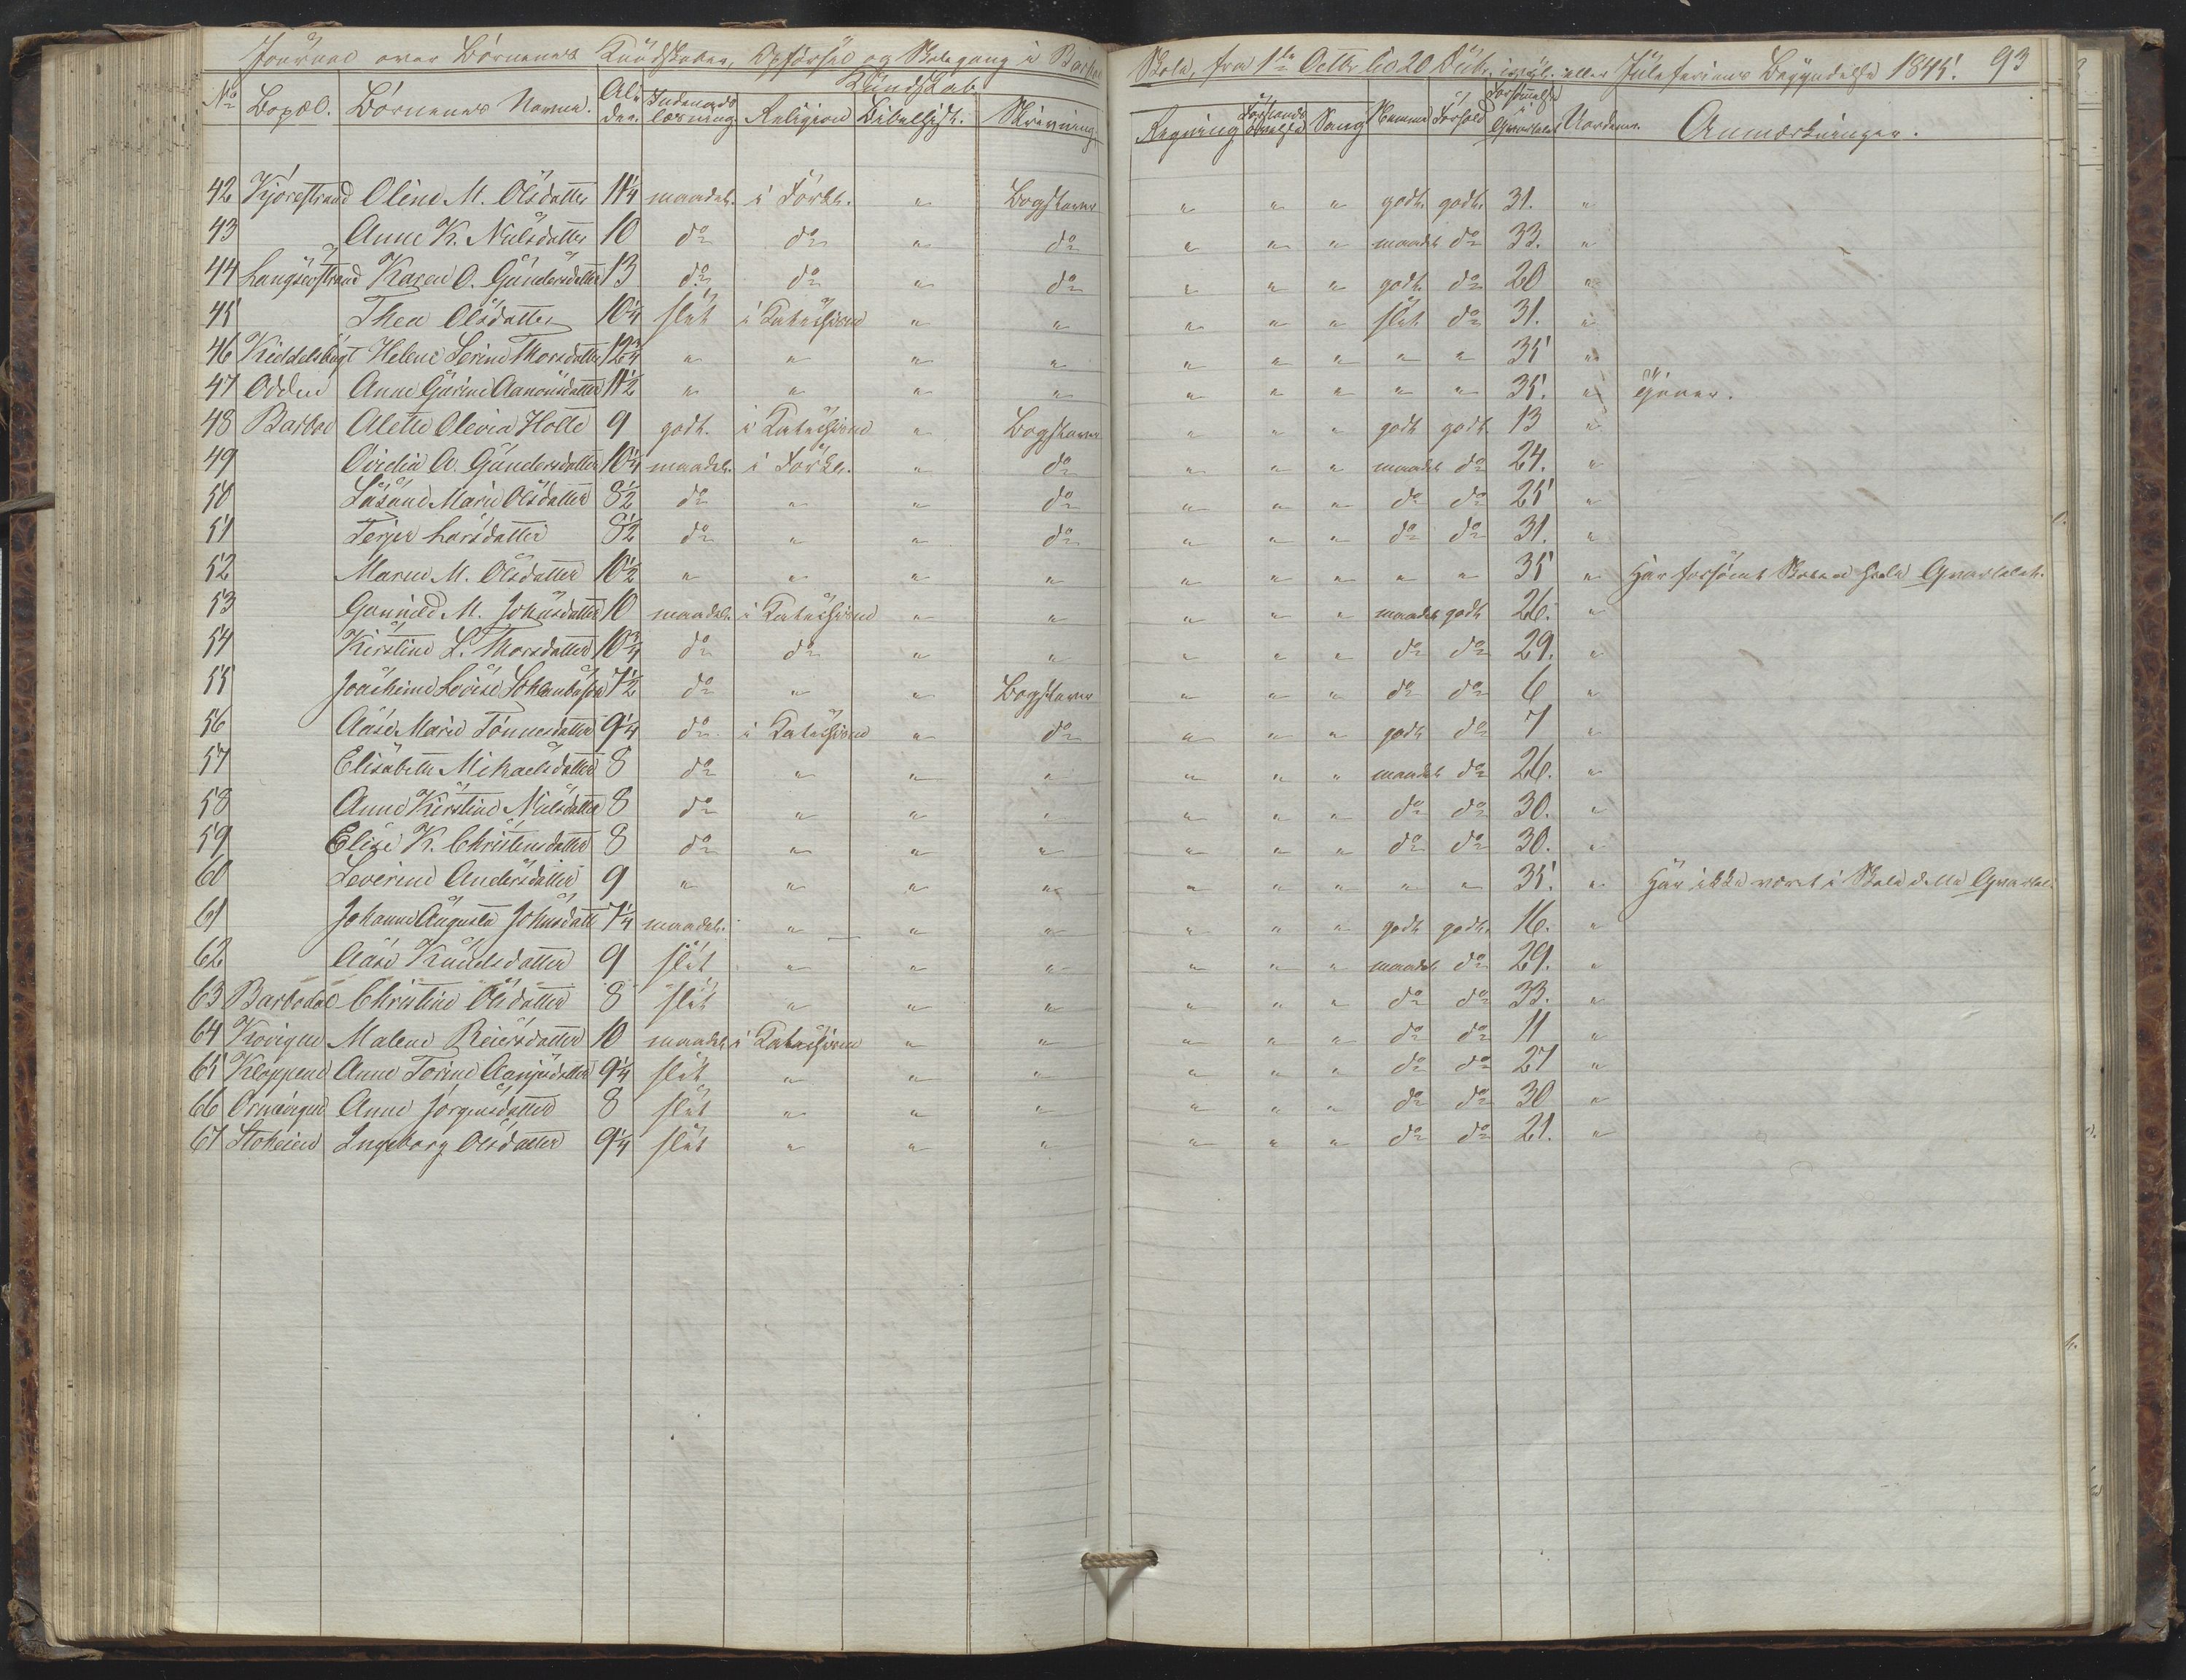 Journal over Börnenes Kundskaber, Opførsel og Skolegang i Barboe Skole, fra 1ste Octbr til 20 Decbr. eller Juleferiens Begyndelse 1845. 93
Kundskab
No Bopæl. Börnenes Navne. Alder. Indenadslæsning Religion Bibelhist. Skrivning Regning Forstandsøvelse Sang Nemme Forhold Forsømmelse i Qvartalet Anmærkninger.
42 Kjörestrand Oline M. Olsdatter 11 1/4 maadel. i Forkl. " Bogstaver " " " godt. godt. 31. "
43 Anne K. Nielsdatter 10 do do " do " " " maadel do 33. "
44 Langsæstrand Karen O. Gundersdatter 13 do do " do " " " godt. do 20 "
45 Thea Olsdatter 10 1/4 slet i Katechismen " " " " " slet do 31. "
46 Kiddelsbugt Helene Serine Thorsdatter 12 3/4 " " " " " " " " " 35 "
47 Odden Anne Gurine Aanonsdatter 11 1/2 " " " " " " " " " 35. " tjener.
48 Barboe Alette Olevia Holte 9 godt. i Katechismen " Bogstaver " " " godt godt. 13 "
49 A. Gundersdatter 10 1/4 maadel. i Forkl. " do " " " maadel do 24. "
50 Susane Marie Olsdatter 8 1/2 do " " do " " " do do 25 "
51 Terjer Larsdatter 8 1/2 do " " do " " " do do 31. "
52 Maren M. Olsdatter 10 1/2 " " " " " " " " " 35 " Har forsömt Skolen hele Qvartalet.
53 Gunnild M. Johnsdatter 10 maadel. i Katechismen " " " " " maadel godt 26. "
54 Kirstine L. Thorsdatter 10 3/4 do do " " " " " do do 29. "
55 Joachime Lovise 7 1/2 do " " Bogstaver " " " do do 6 "
56 Aase Marie Tönnesdatter 9 1/4 do i Katechismen " do " " " godt do 7 "
57 Elisabeth Mikaelsdatter 8 do " " " " " " maadel do 26. "
58 Anne Kirstine Nielsdatter 8 do " " " " " " do do 30. "
59 Elise K. Christensdatter 8 do " " " " " " do do 30. "
60 Severine Andersdatter 9 " " " " " " " " " 35. " Har ikke været i Skole dette Qvartal.
61 Johanne Augusta Johnsdatt 7 1/4 maadel. " " " " " " godt godt. 16. "
62 Aase Knudsdatter 9 slet " " " " " " maadel do 29. "
63 Barbodal Christine Olsdatter 8 slet " " " " " " do do 33. "
64 Malene Reiersdatter 10 maadel i Katechismen " " " " " do do 11 "
65 Kloppene Anne Torine Aanjersdatter 9 1/4 slet " " " " " " do do 27 "
66 Anne Jörgensdatter 8 slet " " " " " " do do 30 "
67 Stoheien Ingeborg Olsdatter 9 1/4 slet " " " " " " do do 21. "